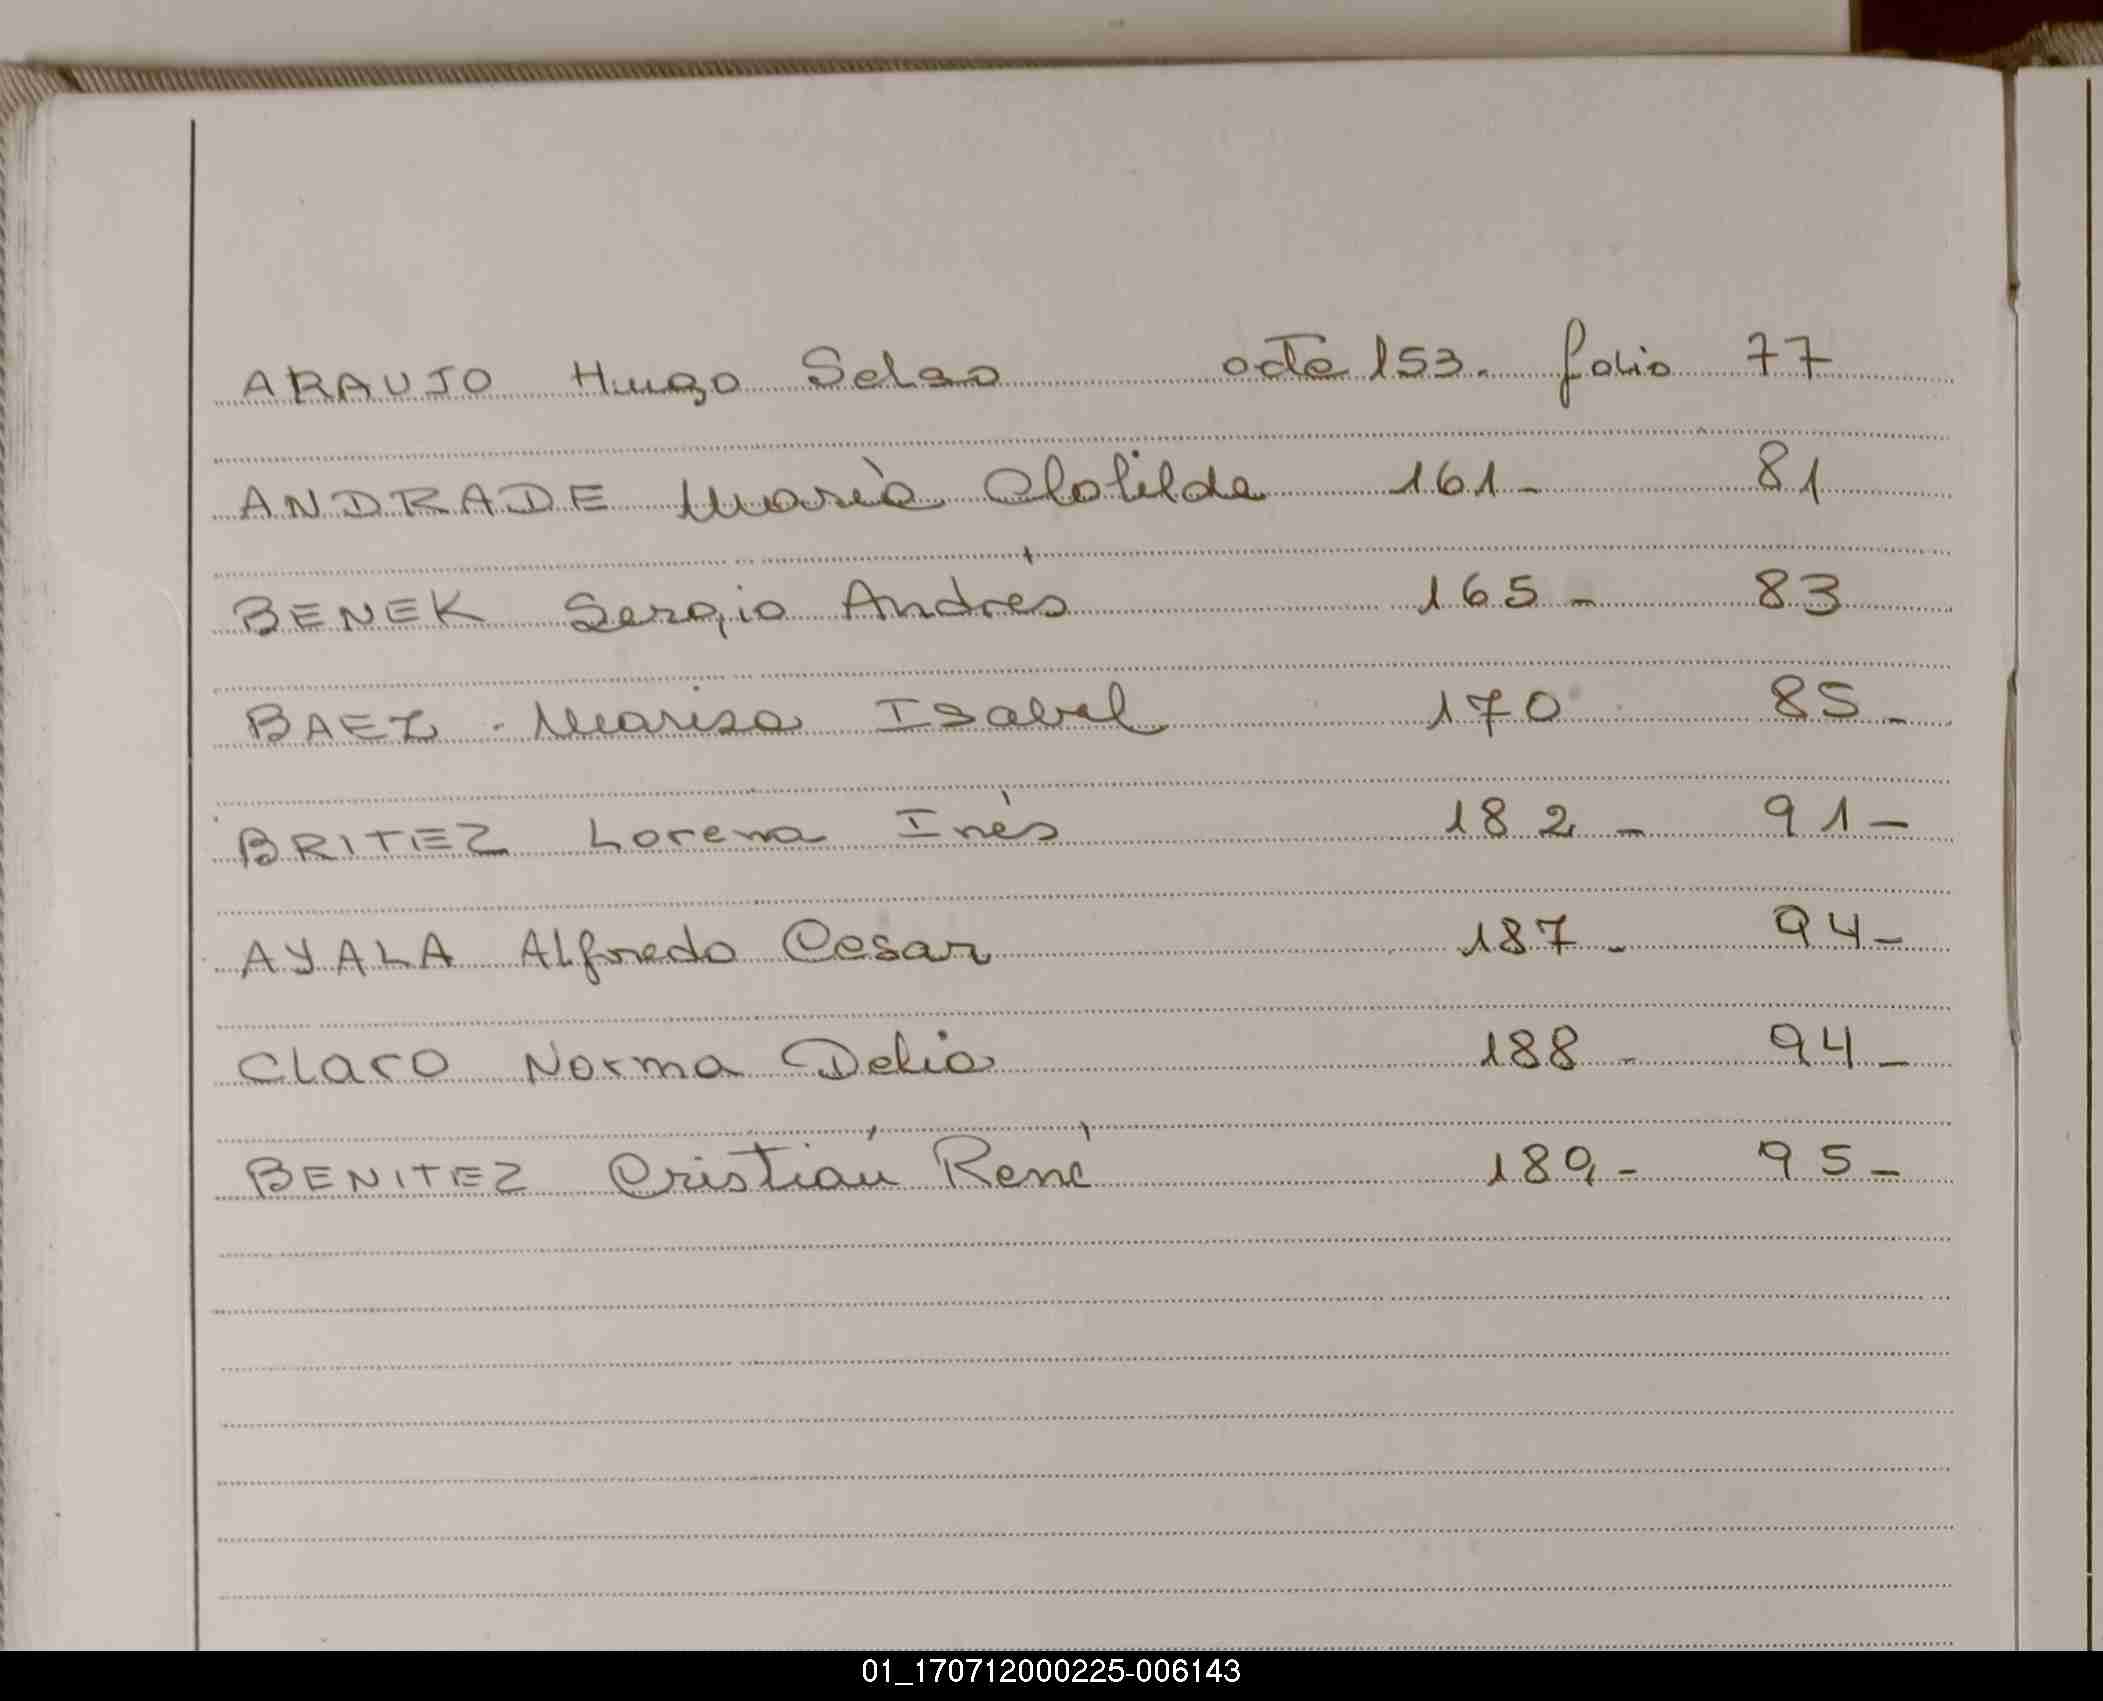 ARAUJO Hugo Selso acta 153. folio 77
ANDRADE María Clotilda 161- 81
BENEK Sergio Andrés 165- 83
BAEZ - Marisa Isabel 170 85-
BRITEZ Lorena Inés 182- 91-
AYALA Alfredo Cesar 187- 94-
Claro Norma Delia 188- 94-
BENITEZ Cristián René 189- 95-
01_170712000225-006143